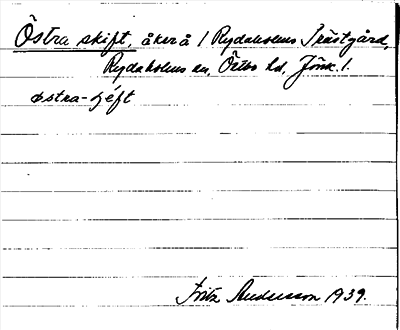 Östra skift, åker å 1 Rydaholms Prästgård,
Rydaholms sn, Östbo hd, Jönk. l.
östra-ʃéft
Fritz Andersson 1939.